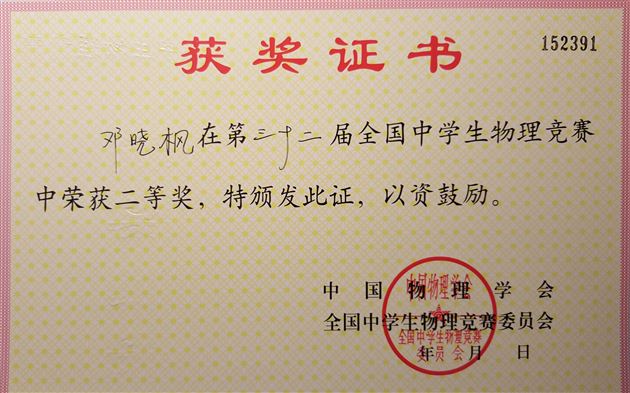 获奖证书
152391
邓晓枫在第三十二届全国中学生物理竞赛
中荣获二等奖，特颁发此证，以资鼓励。
中国物理学会
全国中学生物理竞赛委员会
年 月 日
中国物理学会
全国中学生物理竞赛
委员会